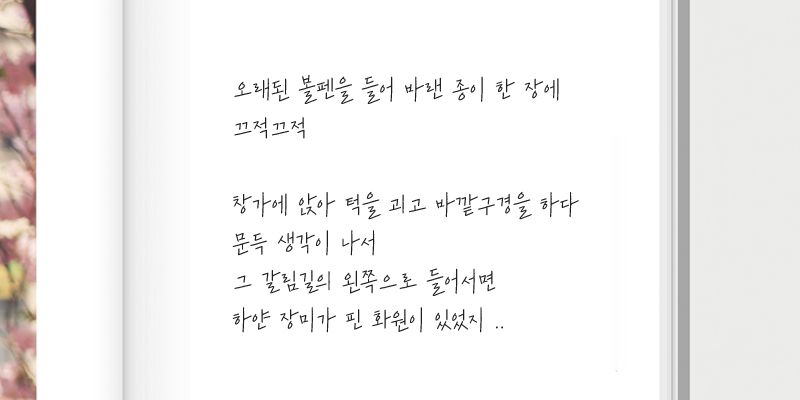 오래된 볼펜을 들어 바랜 종이 한 장에
끄적끄적
창가에 앉아 턱을 괴고 바깥구경을 하다
문득 생각이 나서
그 갈림길의 왼쪽으로 들어서면
하얀 장미가 핀 화원이 있었지 ..